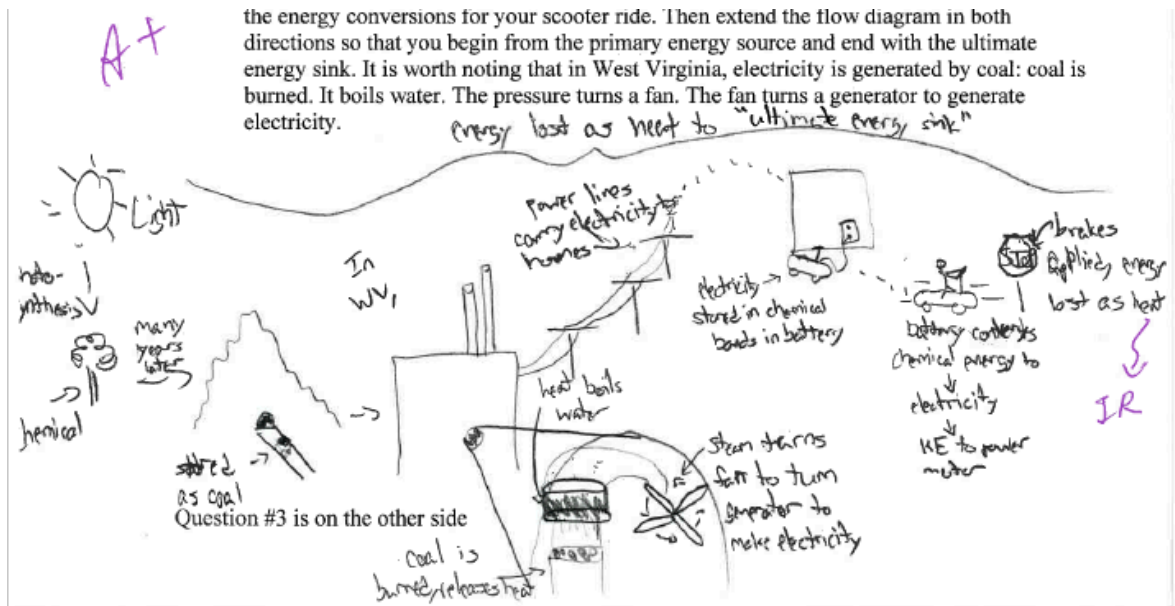 A+
the energy conversions for your scooter ride. Then extend the flow diagram in both
directions so that you begin from the primary energy source and end with the ultimate
energy sink. It is worth noting that in West Virginia, electricity is generated by coal: coal is
burned. It boils water. The pressure turns a fan. The fan turns a generator to generate
electricity.
energy lost as heat to "ultimate energy sink"
Light
hoto-
ynthesis
hemical
many
years
later
stored
as coal
In
WV,
power lines
carry electricity to
homes
heat boils
water
coal is
burned, releases heat
steam turns
fan to turn
generator to
make electricity
electricity
stored in chemical
bonds in battery
battery converts
chemical energy to
electricity
KE to power
motor
STOP
brakes
applied, energy
lost as heat
IR
Question #3 is on the other side